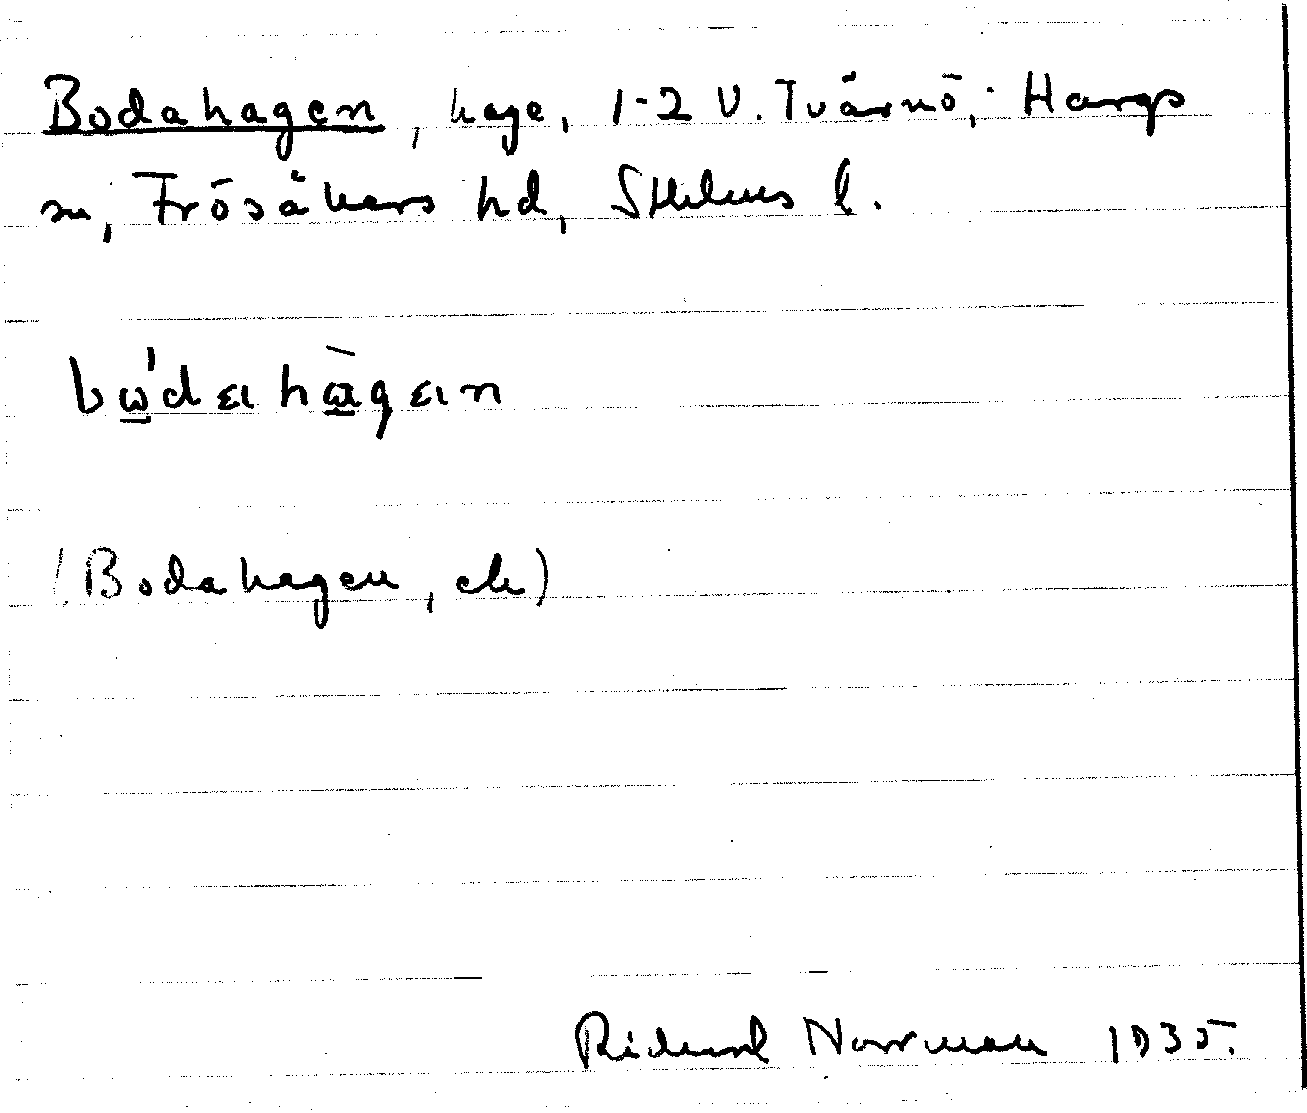 Bodahagen, hage, 1-2 V. Tvärnö, Hargs
sn, Frösåkers hd, Sthlms l.
(Bodahagen, ek)
Richard Norrman 1935.